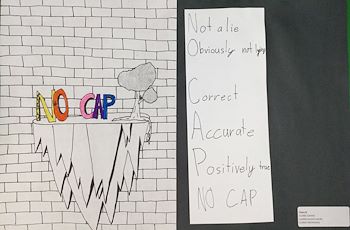 NO CAP
Not a lie
Obviously not lying
Correct
Accurate
Positively true
NO CAP